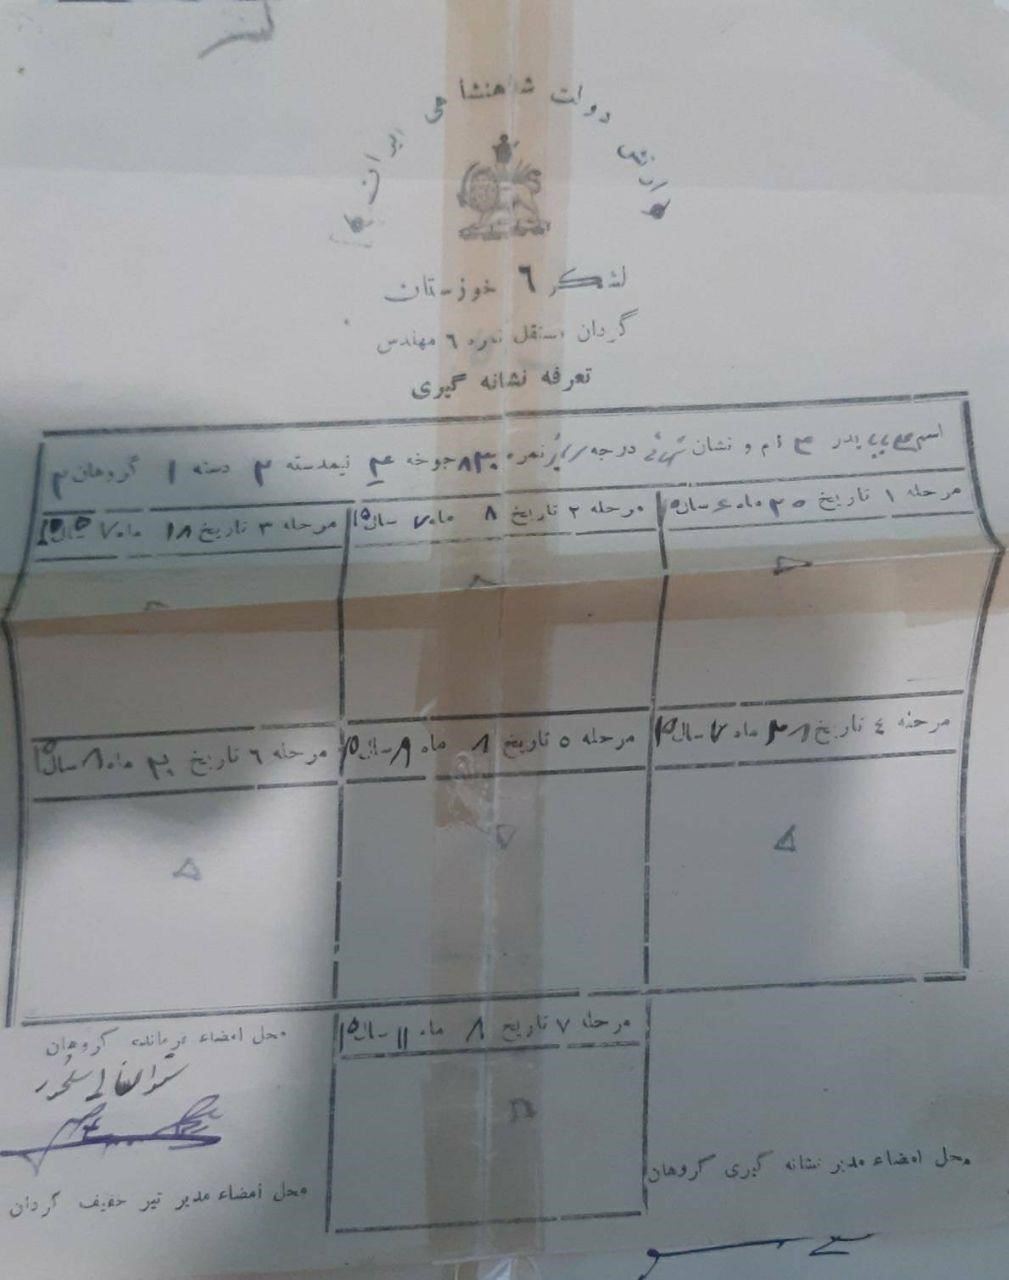 ارتش دولت شاهنشاهی ایران
لشکر ٦ خوزستان
گردان مستقل نمره ٦ مهندس
تعرفه نشانه گیری
اسم پدر نام و نشان درجه نمره جوخه نیمدسته ۲ دسته ۱ گروهان ۲
مرحله ۱ تاریخ ۲۵ ماه ۶ سال ۱۵
مرحله ۲ تاریخ ۸ ماه ۷ سال ۱۵
مرحله ۳ تاریخ ۱۸ ماه ۷ سال ۱۵
مرحله ٤ تاریخ ۲۸ ماه ۷ سال ۱۵
مرحله ٥ تاریخ ۸ ماه ۸ سال ۱۵
مرحله ٦ تاریخ ماه ۸ سال ۱۵
مرحله ۷ تاریخ ۸ ماه ۱۱ سال ۱۵
محل امضاء فرمانده گروهان
محل امضاء مدیر نشانه گیری گروهان
محل امضاء مدیر تیر خفیف گردان